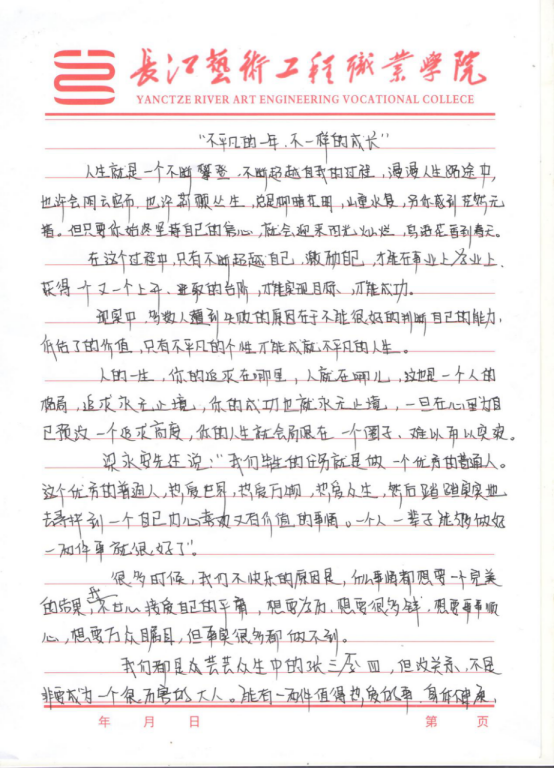 長江藝術工程職業學院
YANCTZE RIVER ART ENGINEERING VOCATIONAL COLLECE
“不平凡的一年,不一样的成长”
人生就是一个不断攀登、不断超越自我的过程,漫漫人生路途中,
也许会阴云密布,也许荆棘丛生,总是柳暗花明,山重水复,另你感到茫然无
措。但只要你始终坚持自己的信心,就会迎来阳光灿烂,鸟语花香到春天。
在这个过程中,只有不断超越自己,激励自己,才能在事业上学业上,
获得一个又一个上升、进取的台阶,才能实现目标、才能成功。
现实中,多数人遭到失败的原因在于不能很好的判断自己的能力,
低估了的价值,只有不平凡的个性才能成就不平凡的人生。
人的一生,你的追求在哪里,人就在哪儿,这也是一个人的
格局,追求永无止境,你的成功也就永无止境,一旦在心里为自
己预设一个追求高度,你的人生就会局限在一个圈子、难以有以突破。
梁永安先生说:“我们毕生的任务就是做一个优秀的普通人。
这个优秀的普通人,热爱世界,热爱万物,热爱众生,然后踏踏实实地
去寻找到一个自己内心喜欢又有价值的事情。一个人一辈子能够做好
一两件事就很好了”。
很多时候,我们不快乐的原因是,什么事情都想要一个完美
的结果,我不甘心接受自己的平庸,想要,想要很多钱,想要事事顺
心,想要万众瞩目,但事实很多都做不到。
我们都是众芸芸众生中的张三李四,但没关系,不是
非要成为一个很厉害的大人。能有一两件值得热爱的事,身体健康,
年 月 日 第 页